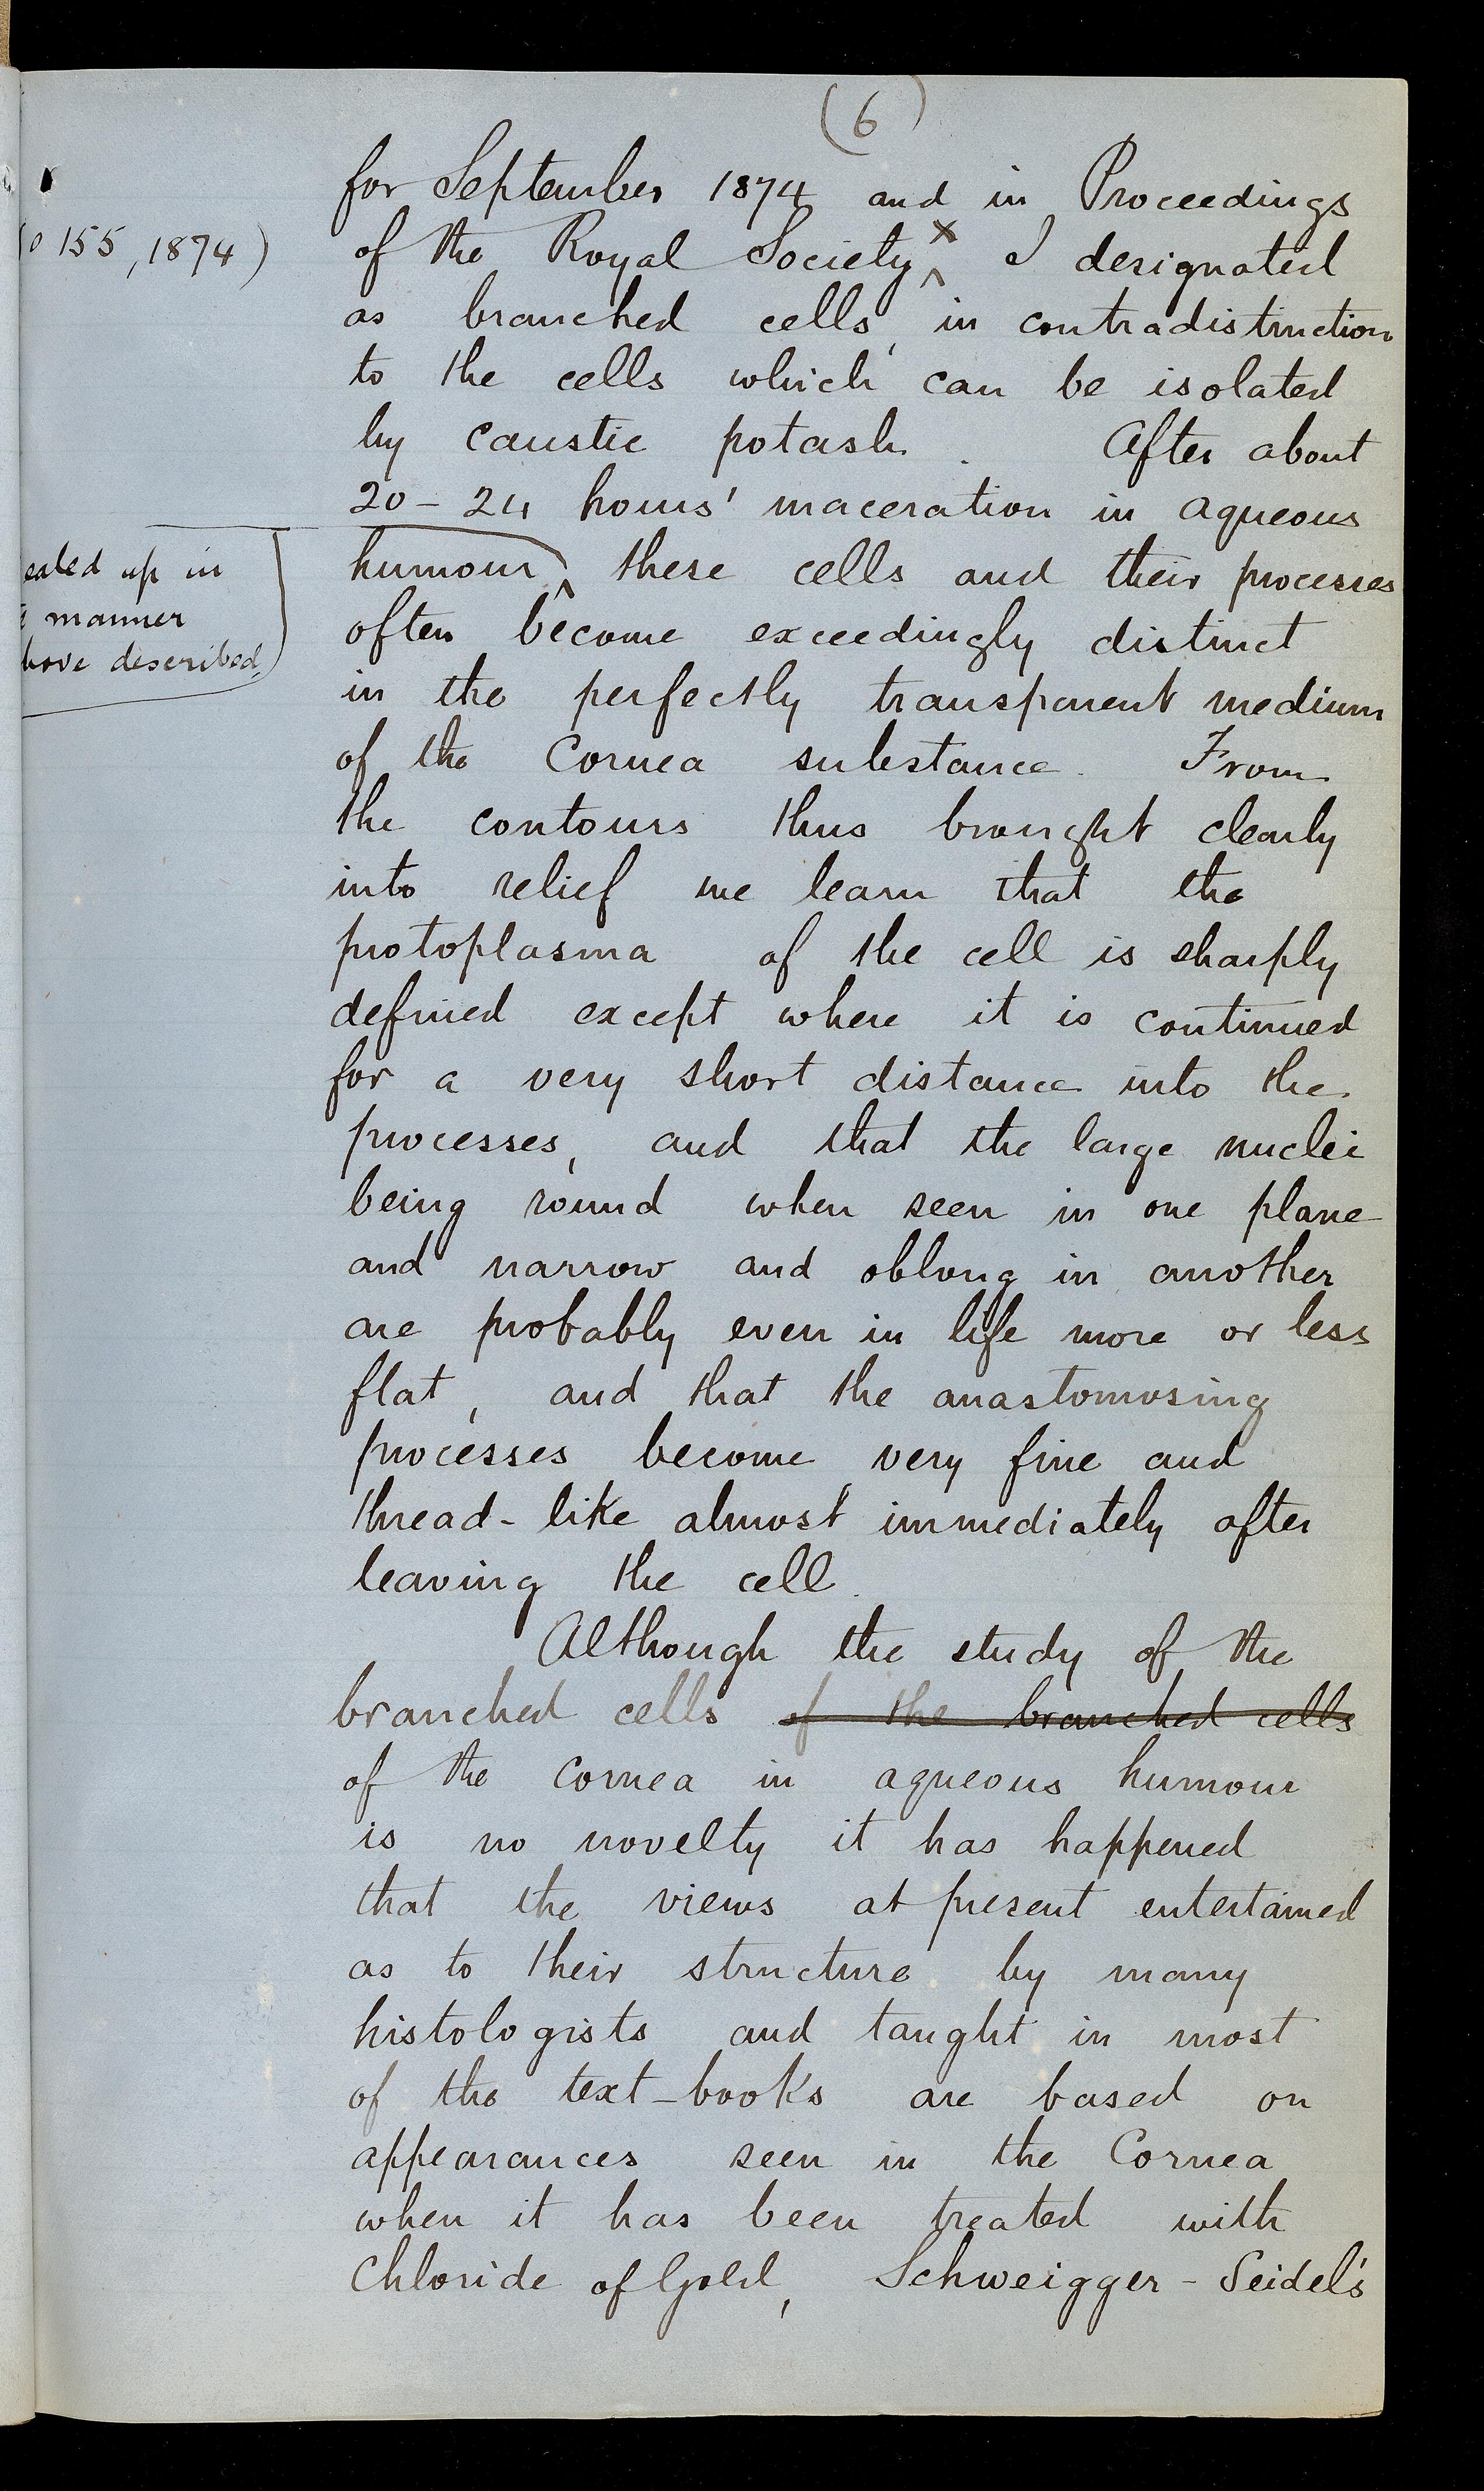 (6)
for September 1874 and in Proceedings
o 155, 1874)
of the Royal Society x I designated
as branched cells, in contradistinction
to the cells which can be isolated
by caustic potash. After about
20 - 24 hours' maceration in aqueous
humour these cells and their processes
ealed up in
manner
bove described,
often become exceedingly distinct
in the perfectly transparent medium
of the Cornea substance. From
the contours thus brought clearly
into relief we learn that the
protoplasma of the cell is sharply
defined except where it is continued
for a very short distance into the
processes, and that the large nuclei
being round when seen in one plane
and narrow and oblong in another
are probably even in life more or less
flat, and that the anastomosing
processes become very fine and
thread-like almost immediately after
leaving the cell.
Although the study of the
branched cells of the branched cells
of the Cornea in aqueous humour
is no novelty it has happened
that the views at present entertained
as to their structure by many
histologists and taught in most
of the text-books are based on
appearances seen in the Cornea
when it has been treated with
Chloride of Gold, Schweigger-Seidel's